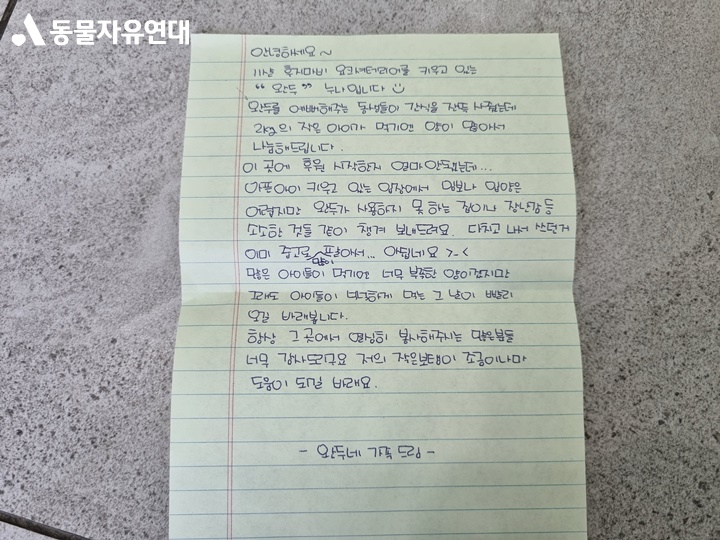 동물자유연대
안녕하세요~
11살 후지마비 요크셔테리어를 키우고 있는
"완두" 누나입니다
완두를 예뻐해주는 동생들이 간식을 잔뜩 사줬는데
2kg의 작은 아이가 먹기엔 양이 많아서
나눔해드립니다.
이 곳에 후원 시작한지 얼마 안됐는데...
아픈아이 키우고 있는 입장에서 임보나 입양은
어렵지만 완두가 사용하지 못 하는 짐이나 장난감 등
소소한 것들 같이 챙겨 보내드려요. 다치고 나서 쓰던거
이미 중고로 많이 팔아서... 아쉽네요 >-<
많은 아이들이 먹기엔 너무 부족한 양이겠지만
그래도 아이들이 넉넉하게 먹는 그 날이 빨리
오길 바래봅니다.
항상 그 곳에서 열심히 봉사해주시는 많은분들
너무 감사드리구요 저의 작은보탬이 조금이나마
도움이 되길 바래요.
- 완두네 가족 드림 -